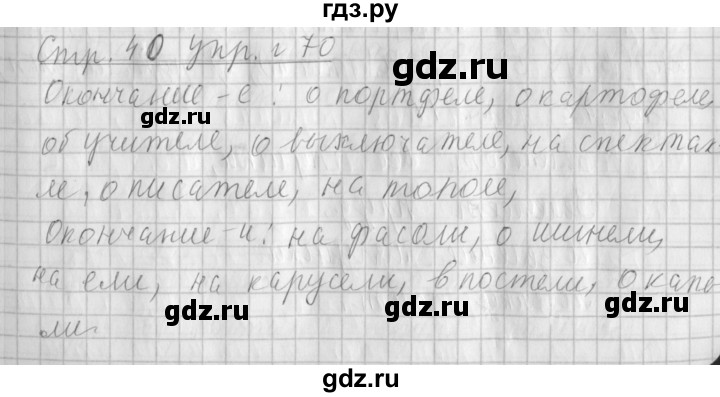 гдз.ру
Стр. 40 упр. 170
gdz.ru
Окончание -е: о портфеле, о картофеле,
gdz.ru
об учителе, о выключателе, на спектак-
gdz.ru
ле, о писателе, на тополе,
Окончание -и: на фасоли, о шинели,
на ели, на карусели, в постели, о капе-
gdz.ru gdz.ru
ли.
gdz.ru
gdz.ru